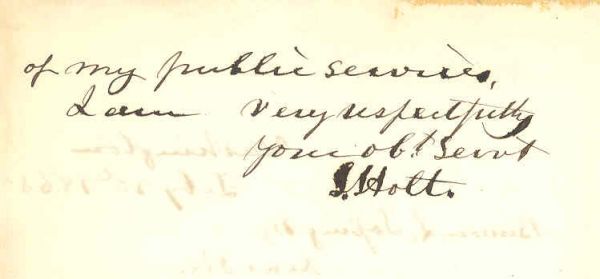 of my public services,
I am very respectfully
your obt servt
J. Holt.